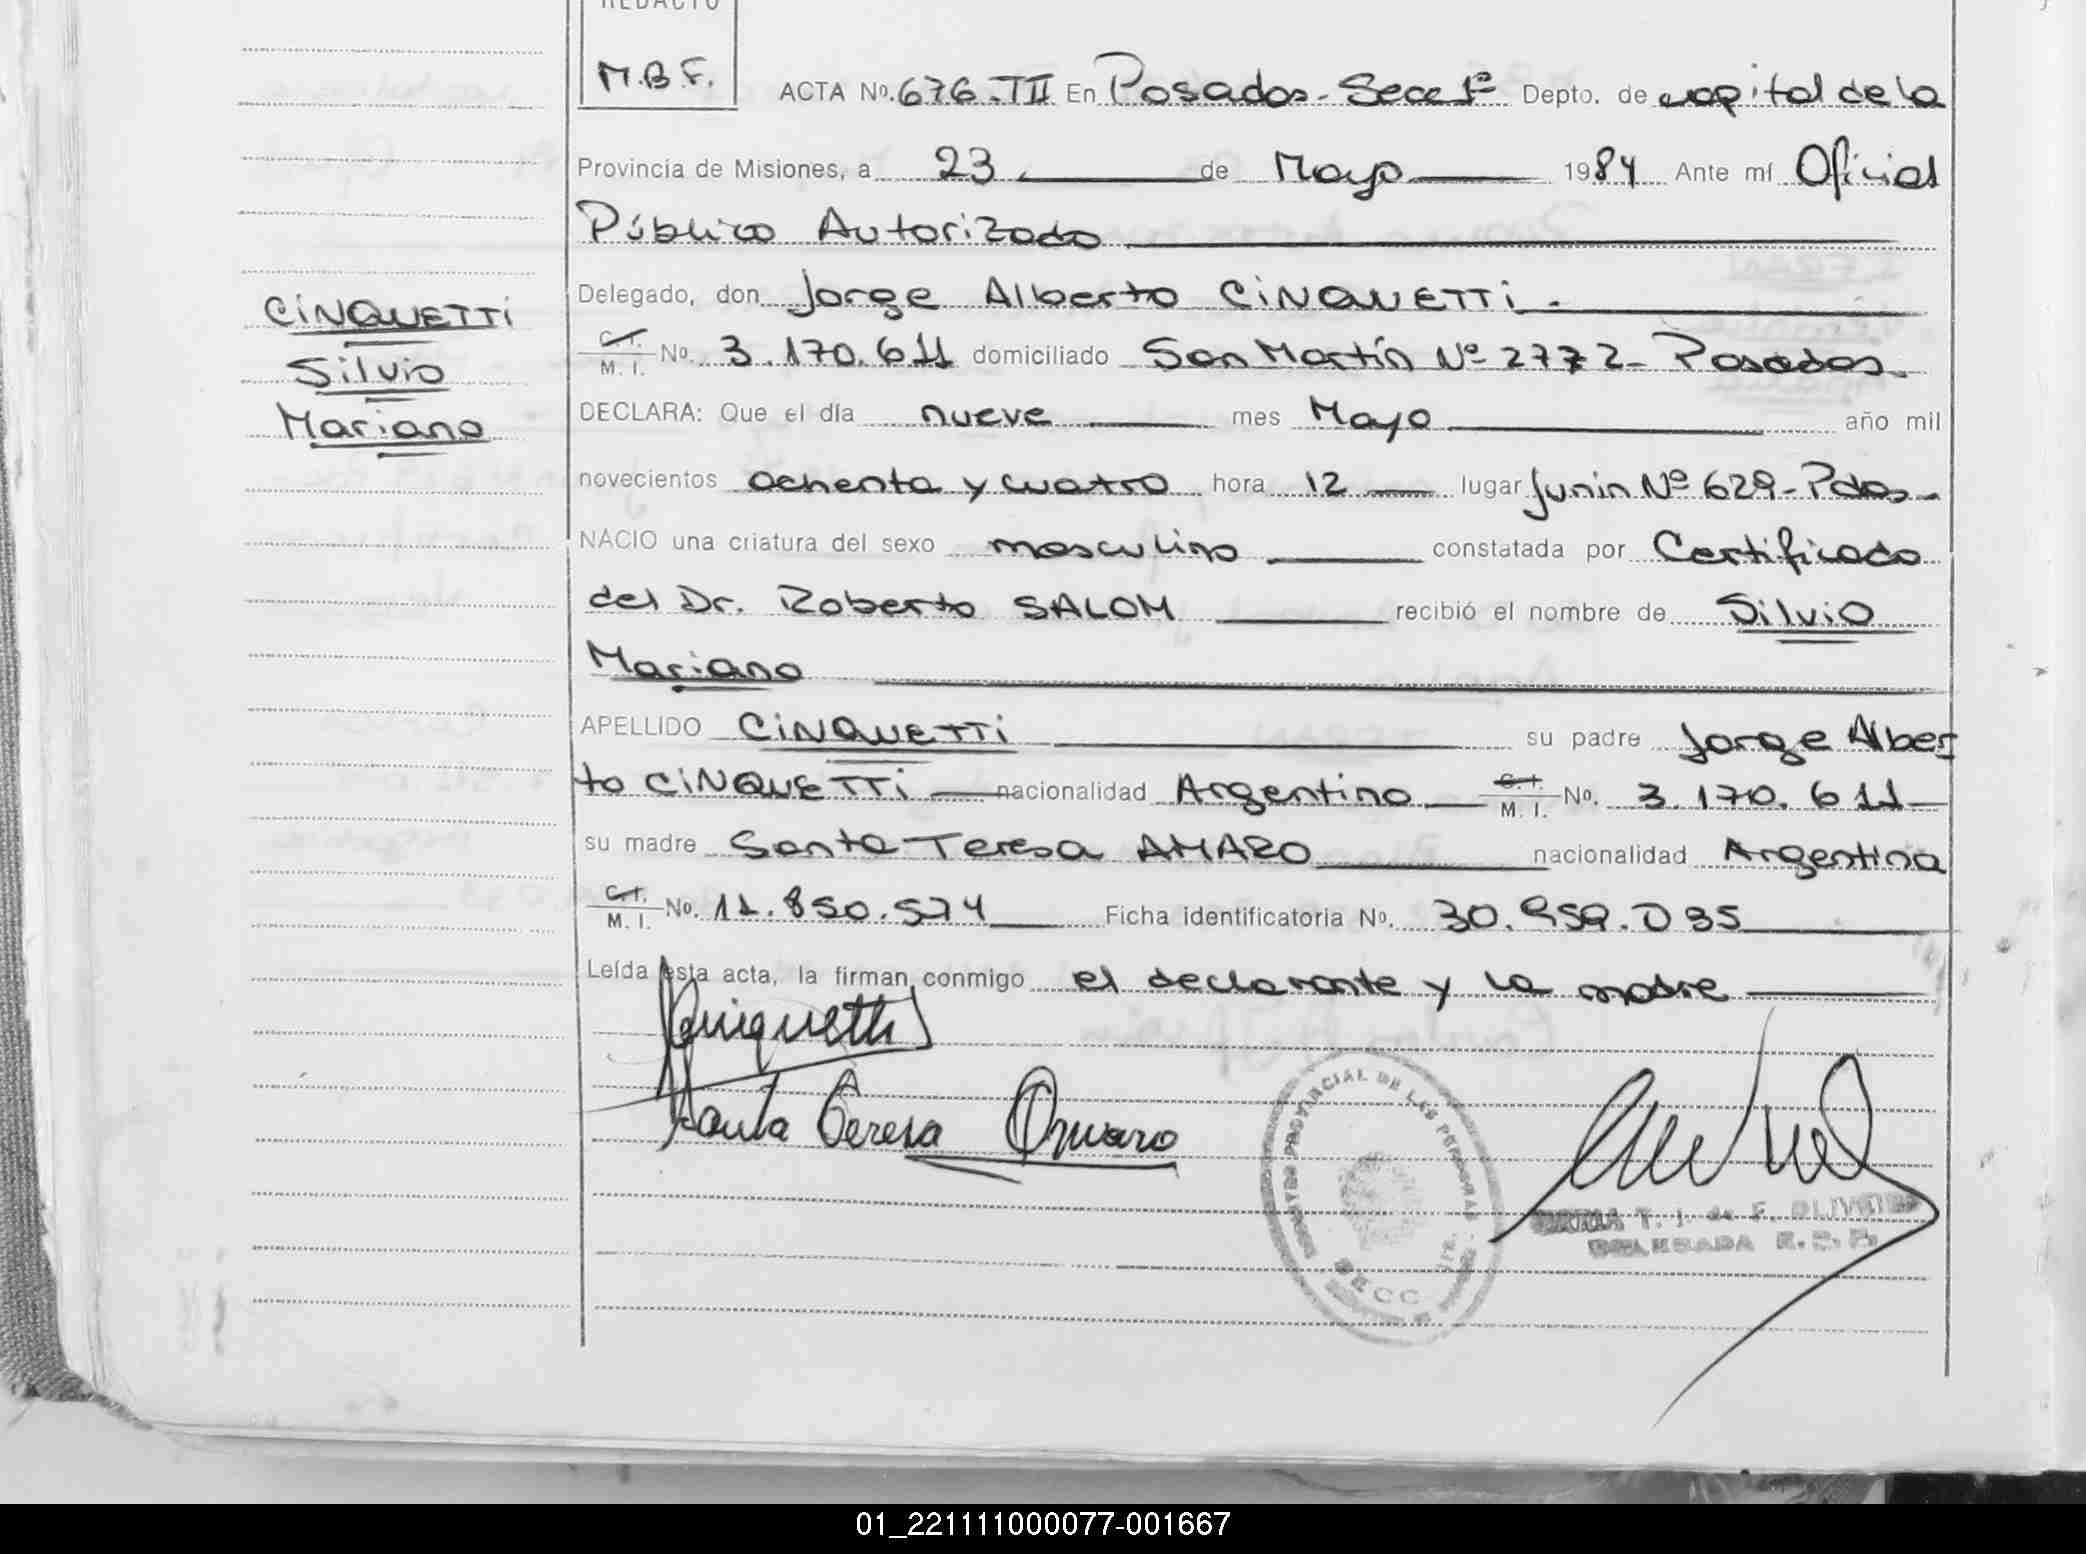 REDACTO
M.B.F.
ACTA Nº. 676.TII En Posadas - Secc 1ª Depto. de capital de la
Provincia de Misiones, a 23 de Mayo 1984 Ante mí Oficial
Público Autorizado
Delegado, don Jorge Alberto CiNQUETTi.
C.I. M. I. No. 3.170.611 domiciliado San Martín Nº 2772 - Posadas.
CiNQUETTi
Silvio
Mariano
DECLARA: Que el día nueve mes Mayo año mil
novecientos ochenta y cuatro hora 12 lugar Junin Nº 629 - Pdas -
NACIO una criatura del sexo masculino constatada por Certificado
del Dr. Roberto SALOM recibió el nombre de Silvio
Mariano
APELLIDO CiNQUETTi su padre Jorge Alber
to CiNQUETTi nacionalidad Argentino C.I. M. I. No. 3.170.611
su madre Santa Teresa AMARO nacionalidad Argentina
C.I. M. I. No. 11.850.574 Ficha identificatoria No. 30.959.035
Leída esta acta, la firman conmigo el declarante y la madre
Santa Teresa Amaro
REGISTRO PROVINCIAL DE LAS PERSONAS
SECC
T. I. de F. OLIVEIRA
DELEGADA R.P.P.
01_221111000077-001667